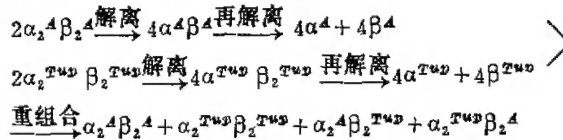 2α₂ᴬβ₂ᴬ —解离→ 4αᴬβᴬ —再解离→ 4αᴬ + 4βᴬ
2α₂ᵀᵘᵖ β₂ᵀᵘᵖ —解离→ 4αᵀᵘᵖ βᵀᵘᵖ —再解离→ 4αᵀᵘᵖ + 4βᵀᵘᵖ
—重组合→ α₂ᴬβ₂ᴬ + α₂ᵀᵘᵖβ₂ᵀᵘᵖ + α₂ᴬβ₂ᵀᵘᵖ + α₂ᵀᵘᵖβ₂ᴬ